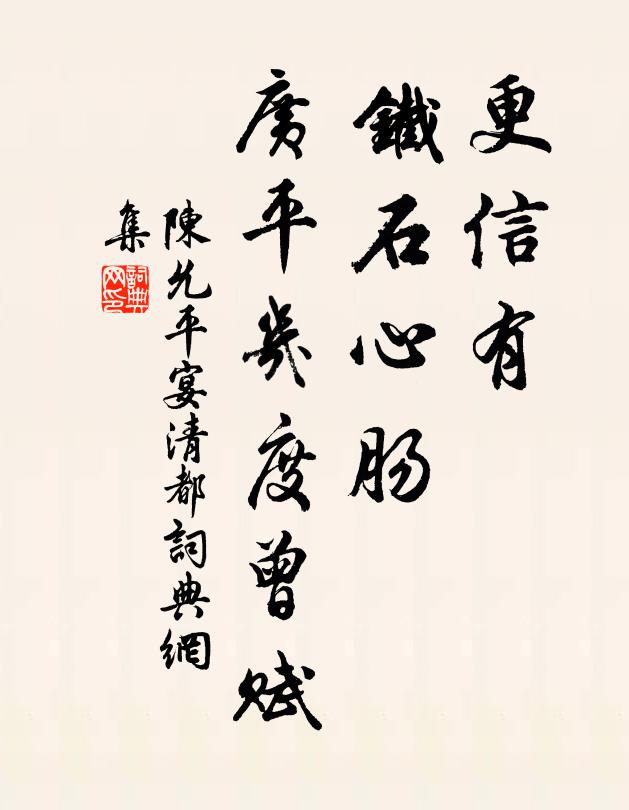 更信有
鐵石心腸
廣平幾度曾賦
陳允平宴清都詞典網
集
詞典網印